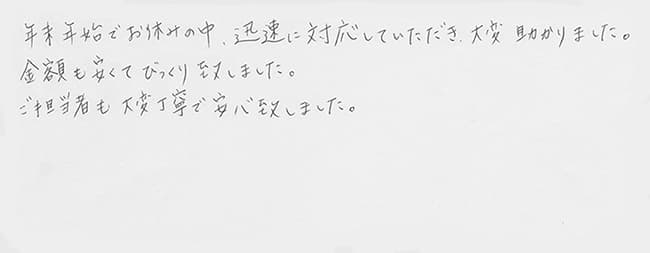 年末年始でお休みの中、迅速に対応していただき、大変助かりました。
金額も安くてびっくり致しました。
ご担当者も大変丁寧で安心致しました。